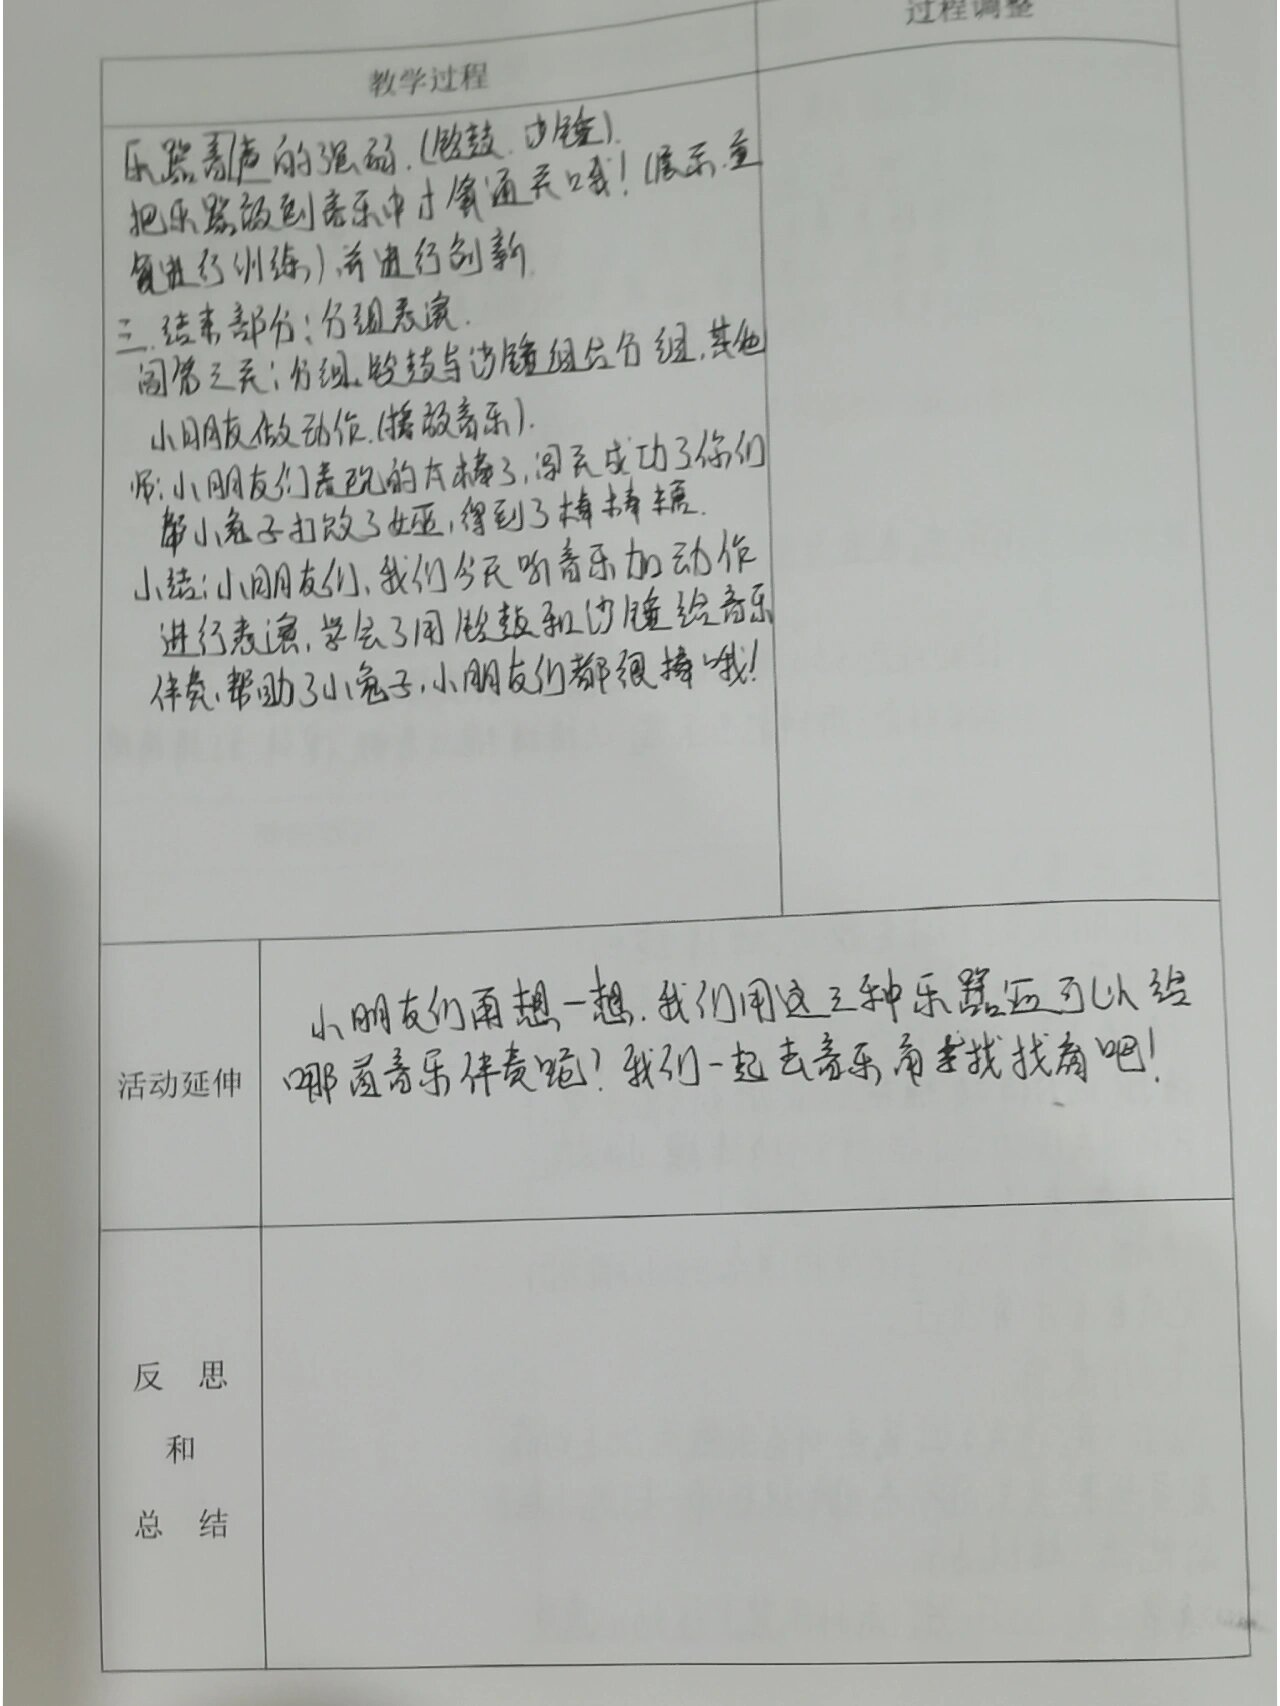 过程调整
教学过程
乐器音声的强弱.(铃鼓、沙锤).
把乐器放到音乐中才算通关哦!(展示.重
复进行训练),并进行创新.
三.结束部分:分组表演.
闯第三关:分组,铃鼓与沙锤组各分组,其他
小朋友做动作.(播放音乐).
师:小朋友们表现的太棒了,闯关成功了你们
帮小兔子打败了女巫,得到了棒棒糖.
小结:小朋友们,我们今天听音乐加动作
进行表演,学会了用铃鼓和沙锤给音乐
伴奏,帮助了小兔子,小朋友们都很棒哦!
活动延伸
小朋友们再想一想.我们用这三种乐器还可以给
哪首音乐伴奏呢?我们一起去音乐角找找看吧!
反 思
和
总 结